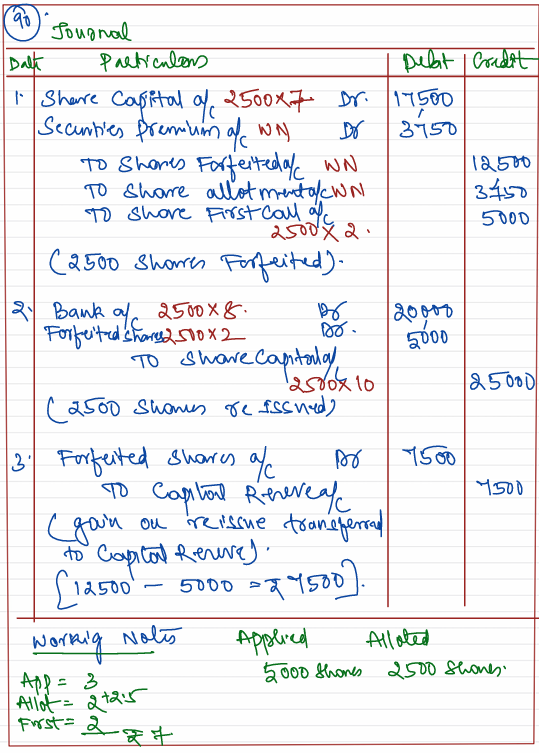 90 Journal
Date Particulars Debt Credit
1. Share Capital a/c 2500×7 Dr. 17500
Securities Premium a/c WN Dr 3750
TO Shares Forfeited a/c WN 12500
TO Share allotment a/c WN 3750
TO Share First Call a/c 5000
2500×2.
(2500 Shares Forfeited).
2. Bank a/c 2500×8. Dr 20000
Forfeited shares 2500×2 Dr. 5000
TO Share Capital a/c
2500×10 25000
(2500 Shares reissued)
3. Forfeited Shares a/c Dr 7500
TO Capital Reserve a/c 7500
(gain on reissue transferred
to Capital Reserve).
[12500 – 5000 = ₹ 7500].
Working Notes Applied Alloted
5000 Shares 2500 Shares.
App = 3
Allot = 2+2.5
First = 2
₹ 7